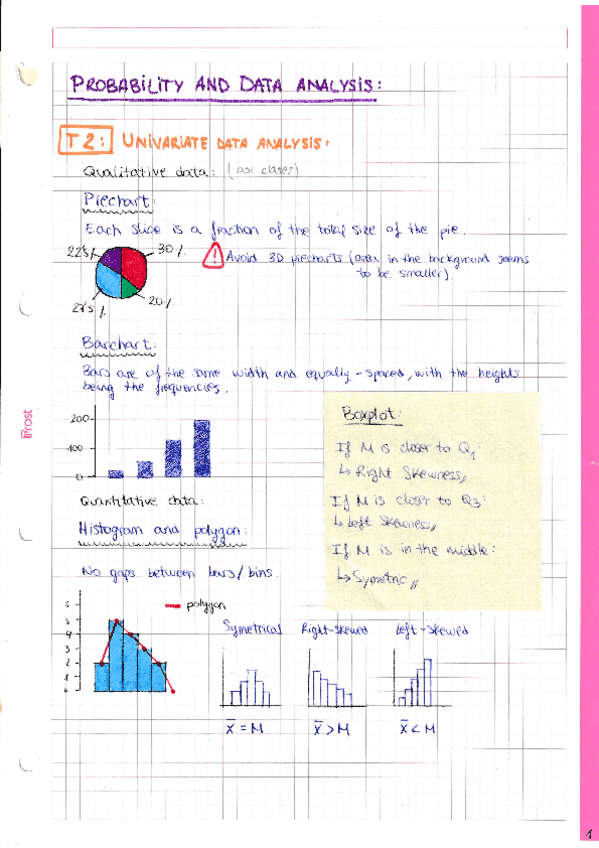 PROBABILITY AND DATA ANALYSIS:
T2: UNIVARIATE DATA ANALYSIS.
Qualitative data: (por clases)
Piechart:
Each slice is a fraction of the total size of the pie.
22'5% 30%
Avoid 3D piecharts (area in the background seems
to be smaller).
27'5% 20%
Barchart:
Bars are of the same width and equally-spared, with the heights
being the frequencies.
200
100
0
Boxplot:
If M is closer to Q1:
↳ Right Skewness,,
If M is closer to Q3:
↳ Left Skewness,,
If M is in the middle:
↳ Symetric,,
Quantitative data:
Histogram and polygon:
No gaps between bars/bins.
polygon
6
5
4
3
2
1
0
Symetrical Right-skewed Left-skewed
x̄ = M x̄ > M x̄ < M
prost
1